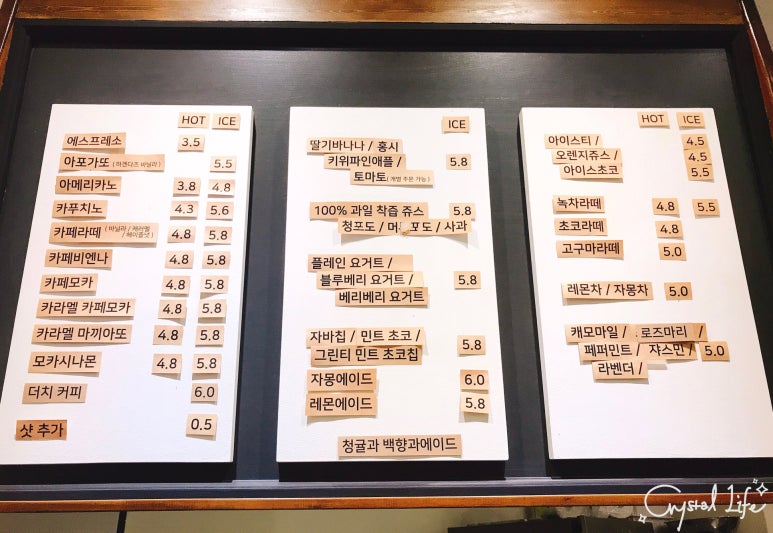 HOT ICE
에스프레소 3.5
아포가또 (하겐다즈 바닐라) 5.5
아메리카노 3.8 4.8
카푸치노 4.3 5.6
카페라떼 (바닐라 / 캐러멜 / 헤이즐넛) 4.8 5.8
카페비엔나 4.8 5.8
카페모카 4.8 5.8
카라멜 카페모카 4.8 5.8
카라멜 마끼아또 4.8 5.8
모카시나몬 4.8 5.8
더치 커피 6.0
샷 추가 0.5
ICE
딸기바나나 / 홍시
키위파인애플 / 5.8
토마토 (개별 주문 가능)
100% 과일 착즙 쥬스 5.8
청포도 / 머 포도 / 사과
플레인 요거트 /
블루베리 요거트 / 5.8
베리베리 요거트
자바칩 / 민트 초코 / 5.8
그린티 민트 초코칩
자몽에이드 6.0
레몬에이드 5.8
청귤과 백향과에이드
HOT ICE
아이스티 / 4.5
오렌지쥬스 / 4.5
아이스초코 5.5
녹차라떼 4.8 5.5
초코라떼 4.8
고구마라떼 5.0
레몬차 / 자몽차 5.0
캐모마일 / 로즈마리 /
페퍼민트 / 쟈스민 / 5.0
라벤더 /
Crystal Life